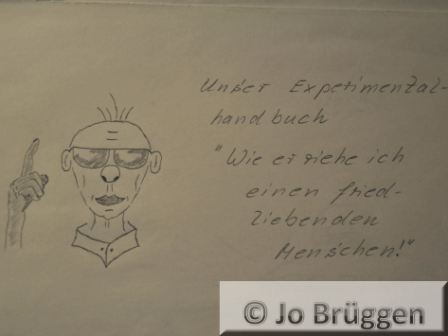 Unser Experimental-
handbuch
"Wie erziehe ich
einen fried-
liebenden
Menschen!"
© Jo Brüggen